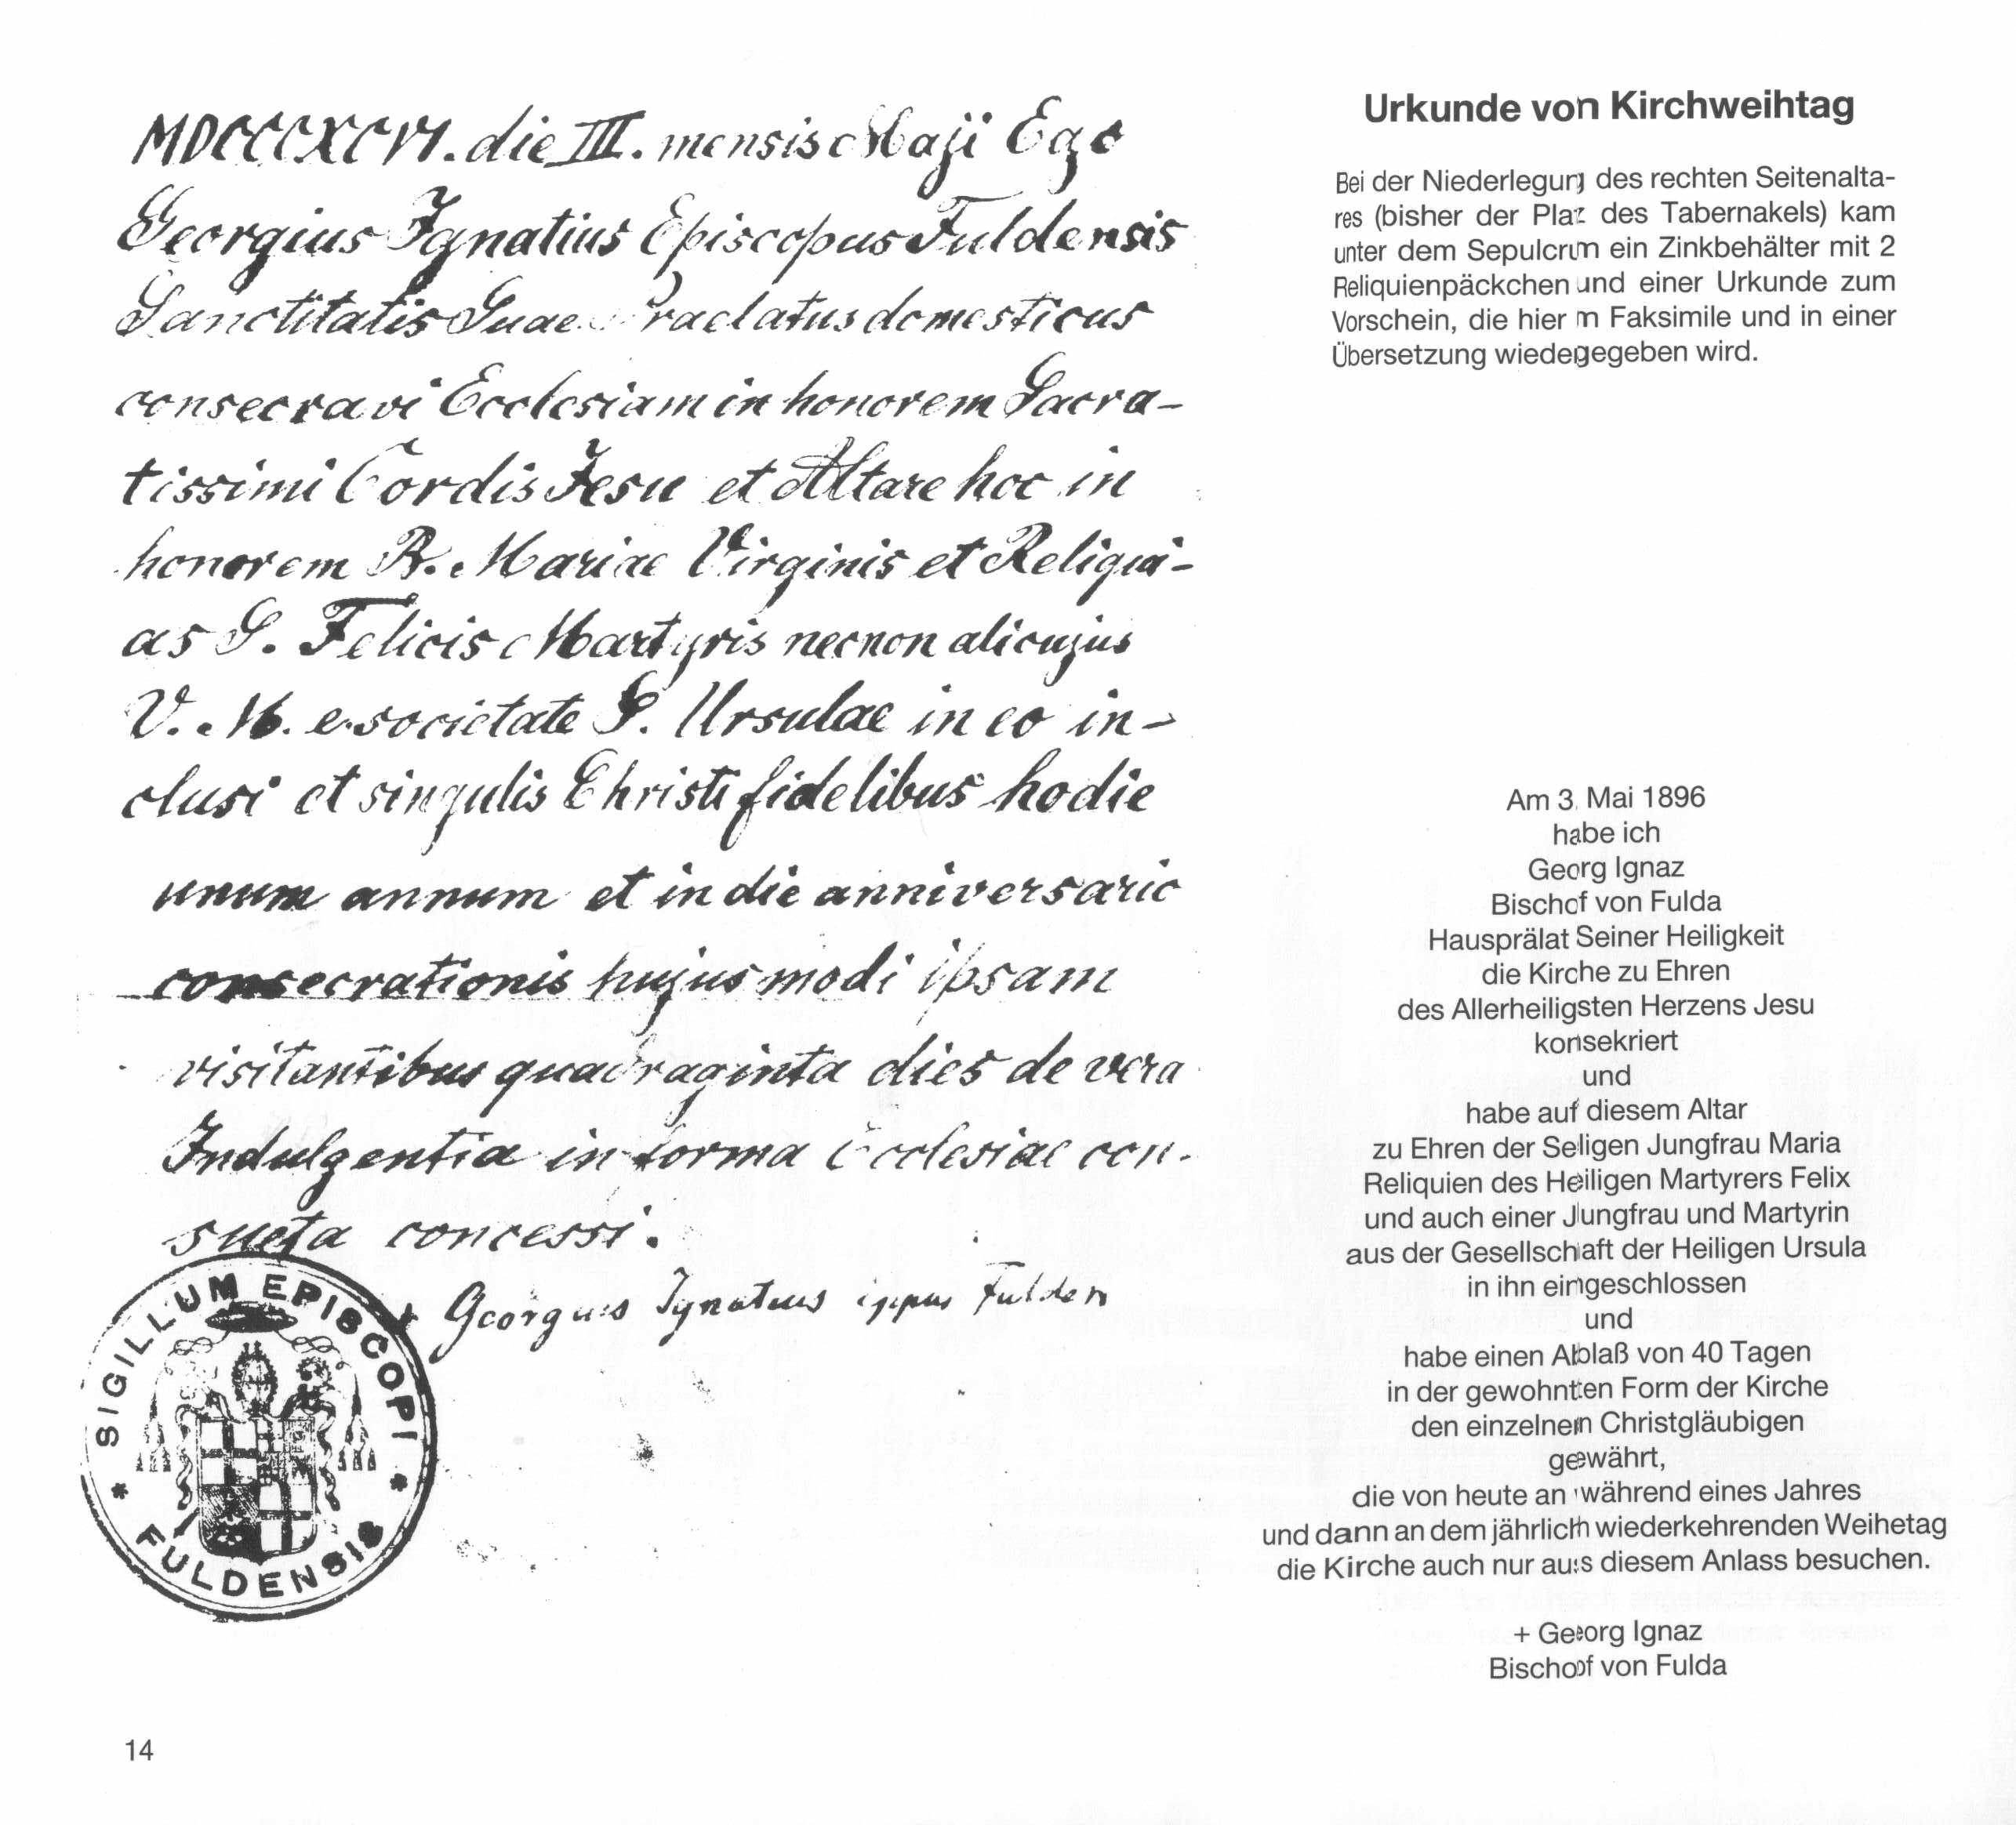 MDCCCXCVI. die III. mensis Maji Ego
Georgius Ignatius Episcopus Fuldensis
Sanctitatis Suae Praelatus domesticus
consecravi Ecclesiam in honorem Sacra-
tissimi Cordis Jesu et Altare hoc in
honorem B. Mariae Virginis et Reliqui-
as S. Felicis Martyris necnon alicujus
V. M. e societate S. Ursulae in eo in-
clusi et singulis Christi fidelibus hodie
unum annum et in die anniversario
consecrationis hujusmodi ipsam
visitantibus quadraginta dies de vera
Indulgentia in forma Ecclesiae con-
sueta concessi.
+ Georgius Ignatius eppus Fulden
SIGILLUM EPISCOPI
* FULDENSIS *
14
Urkunde von Kirchweihtag
Bei der Niederlegung des rechten Seitenalta-
res (bisher der Platz des Tabernakels) kam
unter dem Sepulcrum ein Zinkbehälter mit 2
Reliquienpäckchen und einer Urkunde zum
Vorschein, die hier im Faksimile und in einer
Übersetzung wiedergegeben wird.
Am 3. Mai 1896
habe ich
Georg Ignaz
Bischof von Fulda
Hausprälat Seiner Heiligkeit
die Kirche zu Ehren
des Allerheiligsten Herzens Jesu
konsekriert
und
habe auf diesem Altar
zu Ehren der Seligen Jungfrau Maria
Reliquien des Heiligen Martyrers Felix
und auch einer Jungfrau und Martyrin
aus der Gesellschaft der Heiligen Ursula
in ihn eingeschlossen
und
habe einen Ablaß von 40 Tagen
in der gewohnten Form der Kirche
den einzelnen Christgläubigen
gewährt,
die von heute an während eines Jahres
und dann an dem jährlich wiederkehrenden Weihetag
die Kirche auch nur aus diesem Anlass besuchen.
+ Georg Ignaz
Bischof von Fulda